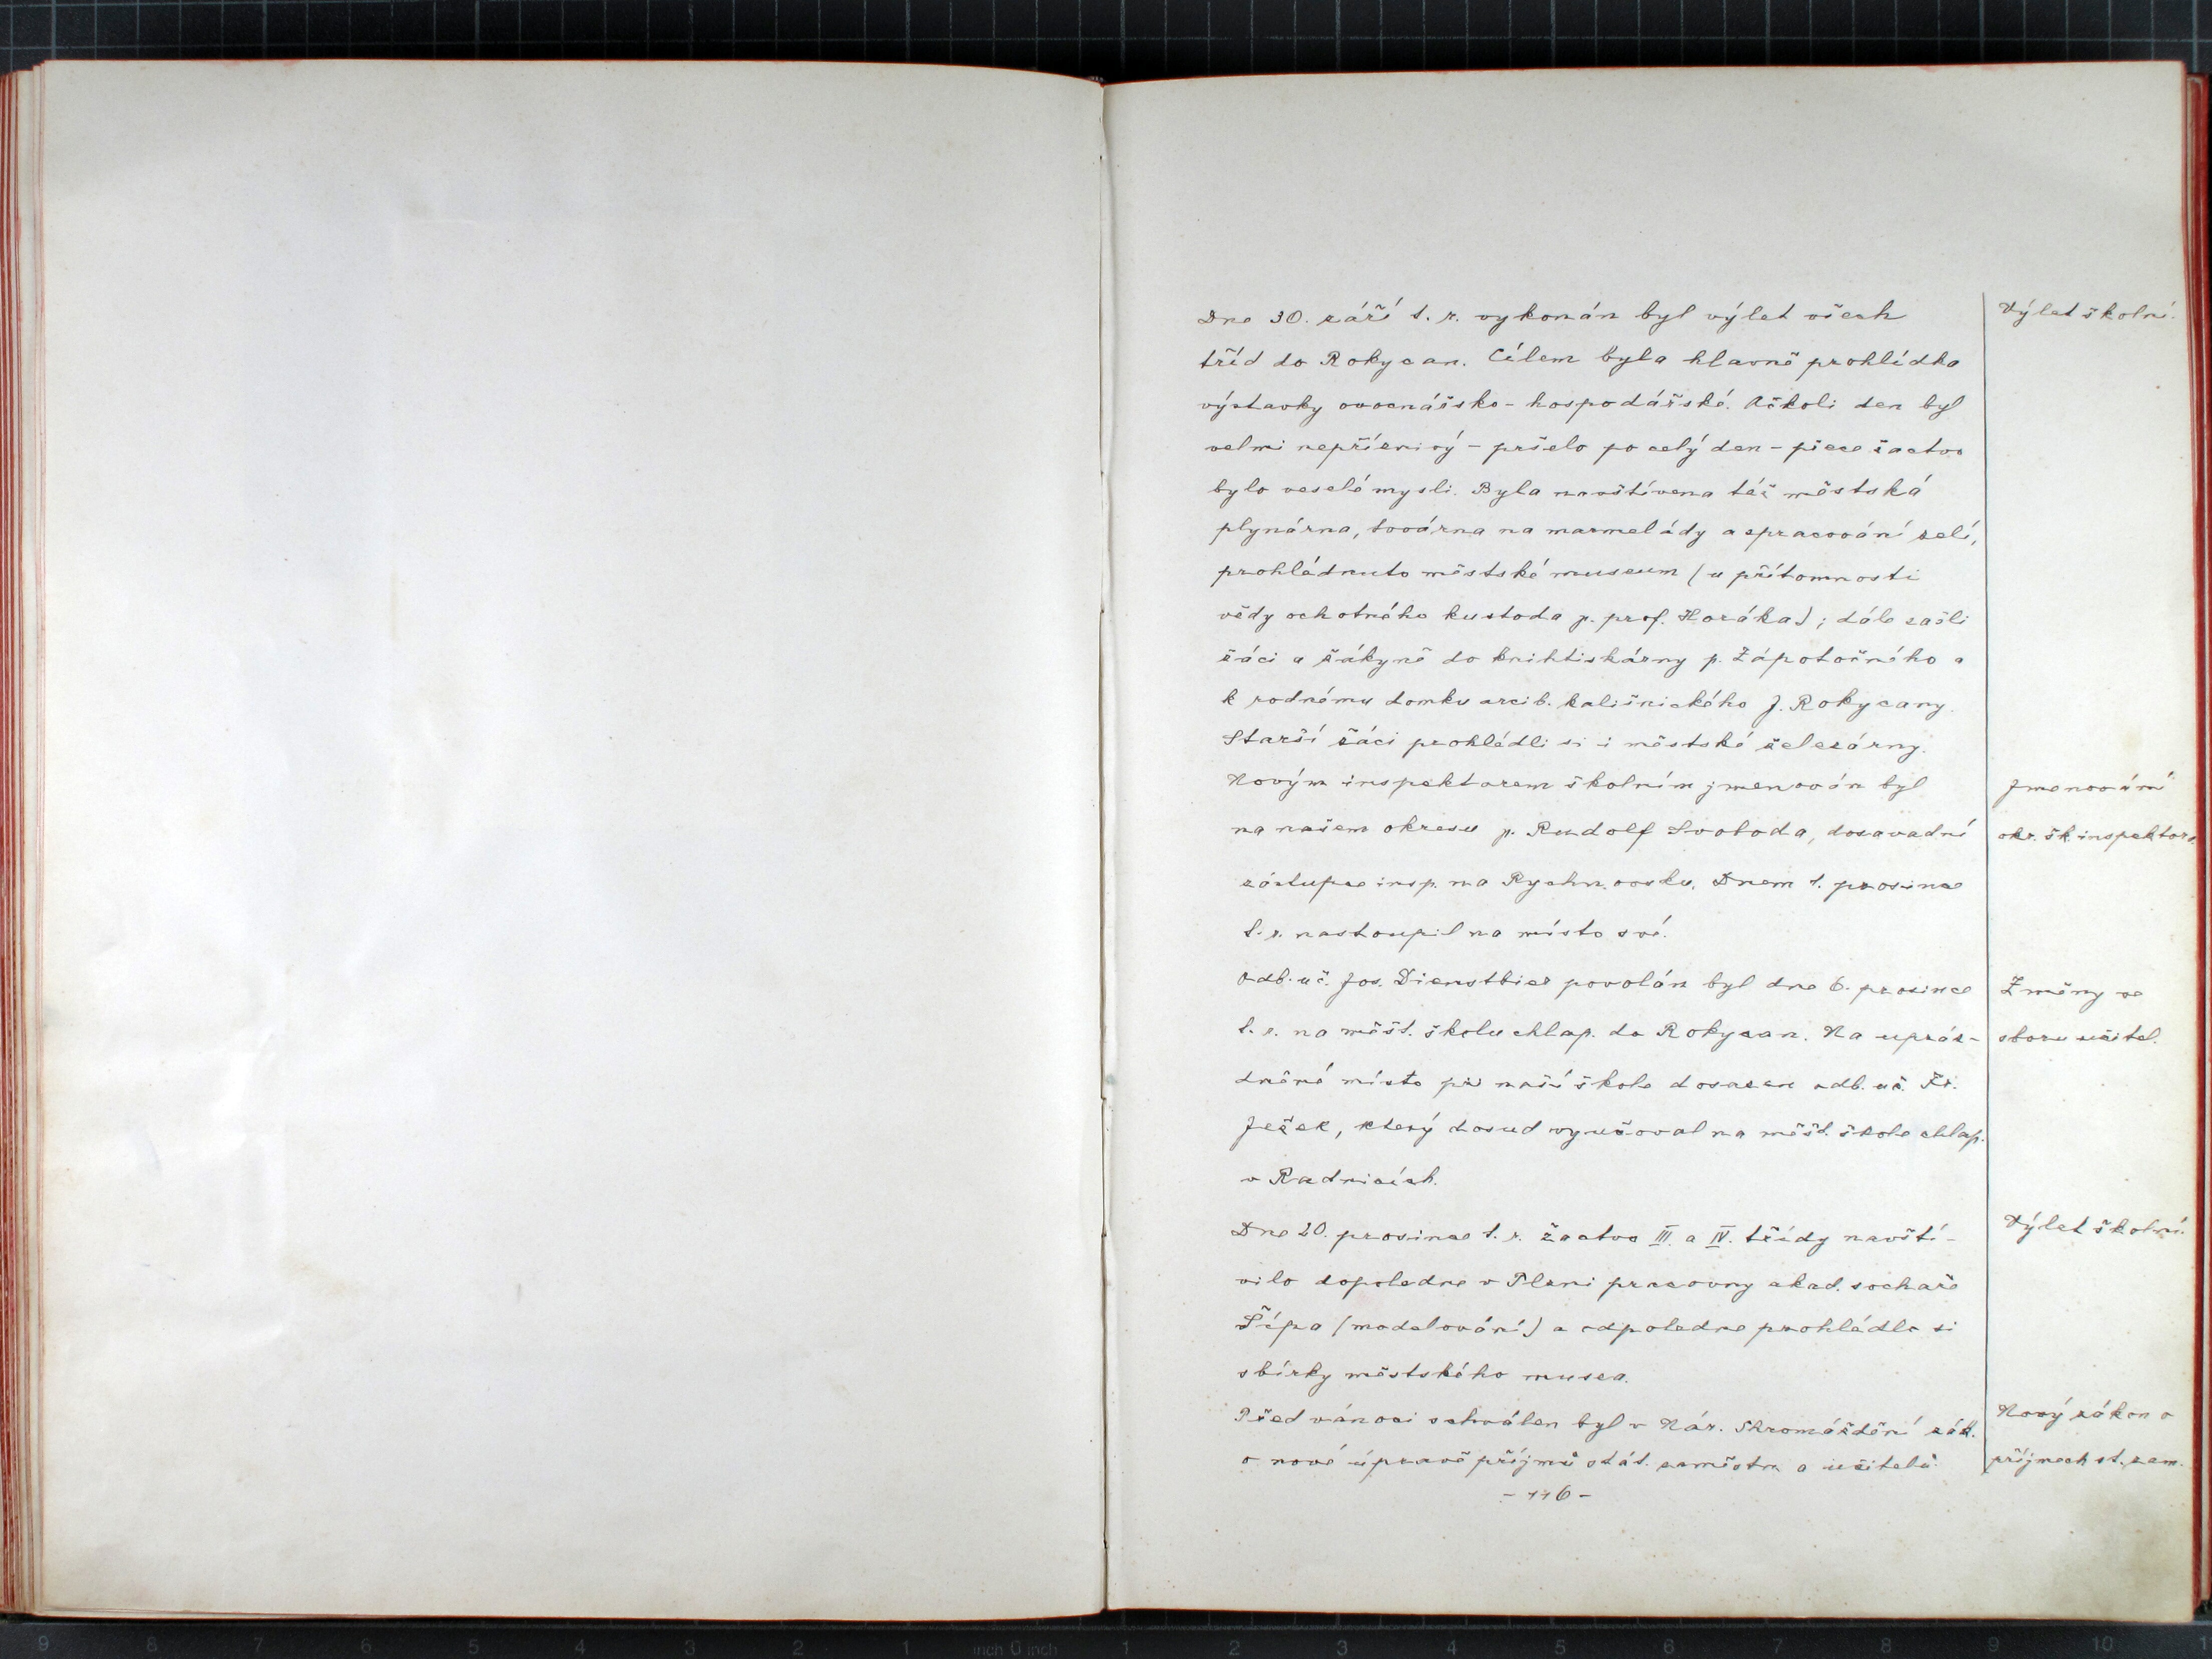 Dne 30. září t. r. vykonán byl výlet všech
tříd do Rokycan. Cílem byla hlavně prohlídka
výstavky ovocnářsko-hospodářské. Ačkoli den byl
velmi nepříznivý - pršelo po celý den - přece žactvo
bylo veselé mysli. Byla navštívena též městská
plynárna, továrna na marmelády a zpracování zelí,
prohlédnuto městské museum (u přítomnosti
vždy ochotného kustoda p. prof. Horáka); dále zašli
žáci a žákyně do knihtiskárny p. Zápotočného a
k rodnému domku arcib. kališnického J. Rokycany.
Starší žáci prohlédli si i městské železárny.
Novým inspektorem školním jmenován byl
na našem okresu p. Rudolf Svoboda, dosavadní
zástupce insp. na Rychnovsku. Dnem 1. prosince
t. r. nastoupil na místo své.
Odb. uč. Jos. Dienstbier povolán byl dne 6. prosince
t. r. na měšť. školu chlap. do Rokycan. Na upráz-
dněné místo při naší škole dosazen odb. uč. Fr.
Ježek, který dosud vyučoval na měšť. škole chlap.
v Radnicích.
Dne 20. prosince t. r. žactvo III. a IV. třídy navští-
vilo dopoledne v Plzni pracovny akad. sochaře
Šípa (modelování) a odpoledne prohlédlo si
sbírky městského musea.
Před vánoci schválen byl v Nár. Shromáždění zák.
o nové úpravě příjmů stát. zaměstn. a učitelů.
- 116 -
Výlet školní.
Jmenování
okr. šk. inspektora.
Změny ve
sboru učitel.
Výlet školní.
Nový zákon o
příjmech st. zam.
inch 0 inch
9 8 7 6 5 4 3 2 1 1 2 3 4 5 6 7 8 9 10